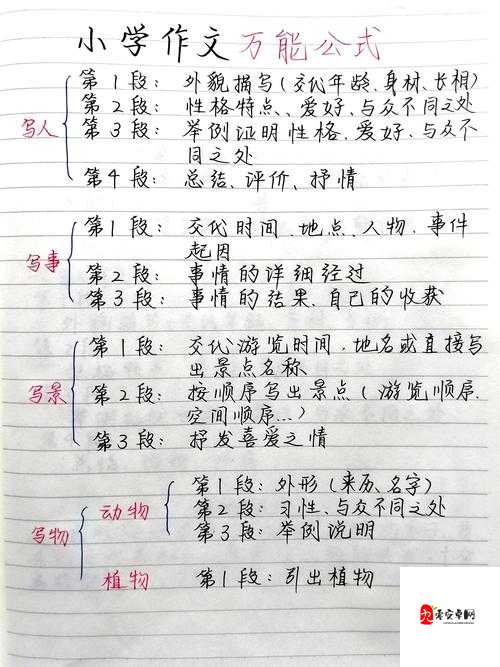 小学作文万能公式
写人
第1段：外貌描写(交代年龄、身材、长相)
第2段：性格特点、爱好、与众不同之处
第3段：举例证明性格、爱好、与众不
同之处
第4段：总结、评价、抒情
写事
第1段：交代时间、地点、人物、事件
起因
第2段：事情的详细经过
第3段：事情的结果、自己的收获
写景
第1段：交代游览时间、地名或直接写
出景点名称
第2段：按顺序写出景点(游览顺序、
空间顺序...)
第3段：抒发喜爱之情
写物
动物
第1段：外形(来历、名字)
第2段：习性、与众不同之处
第3段：举例说明
植物
第1段：引出植物
零安卓网